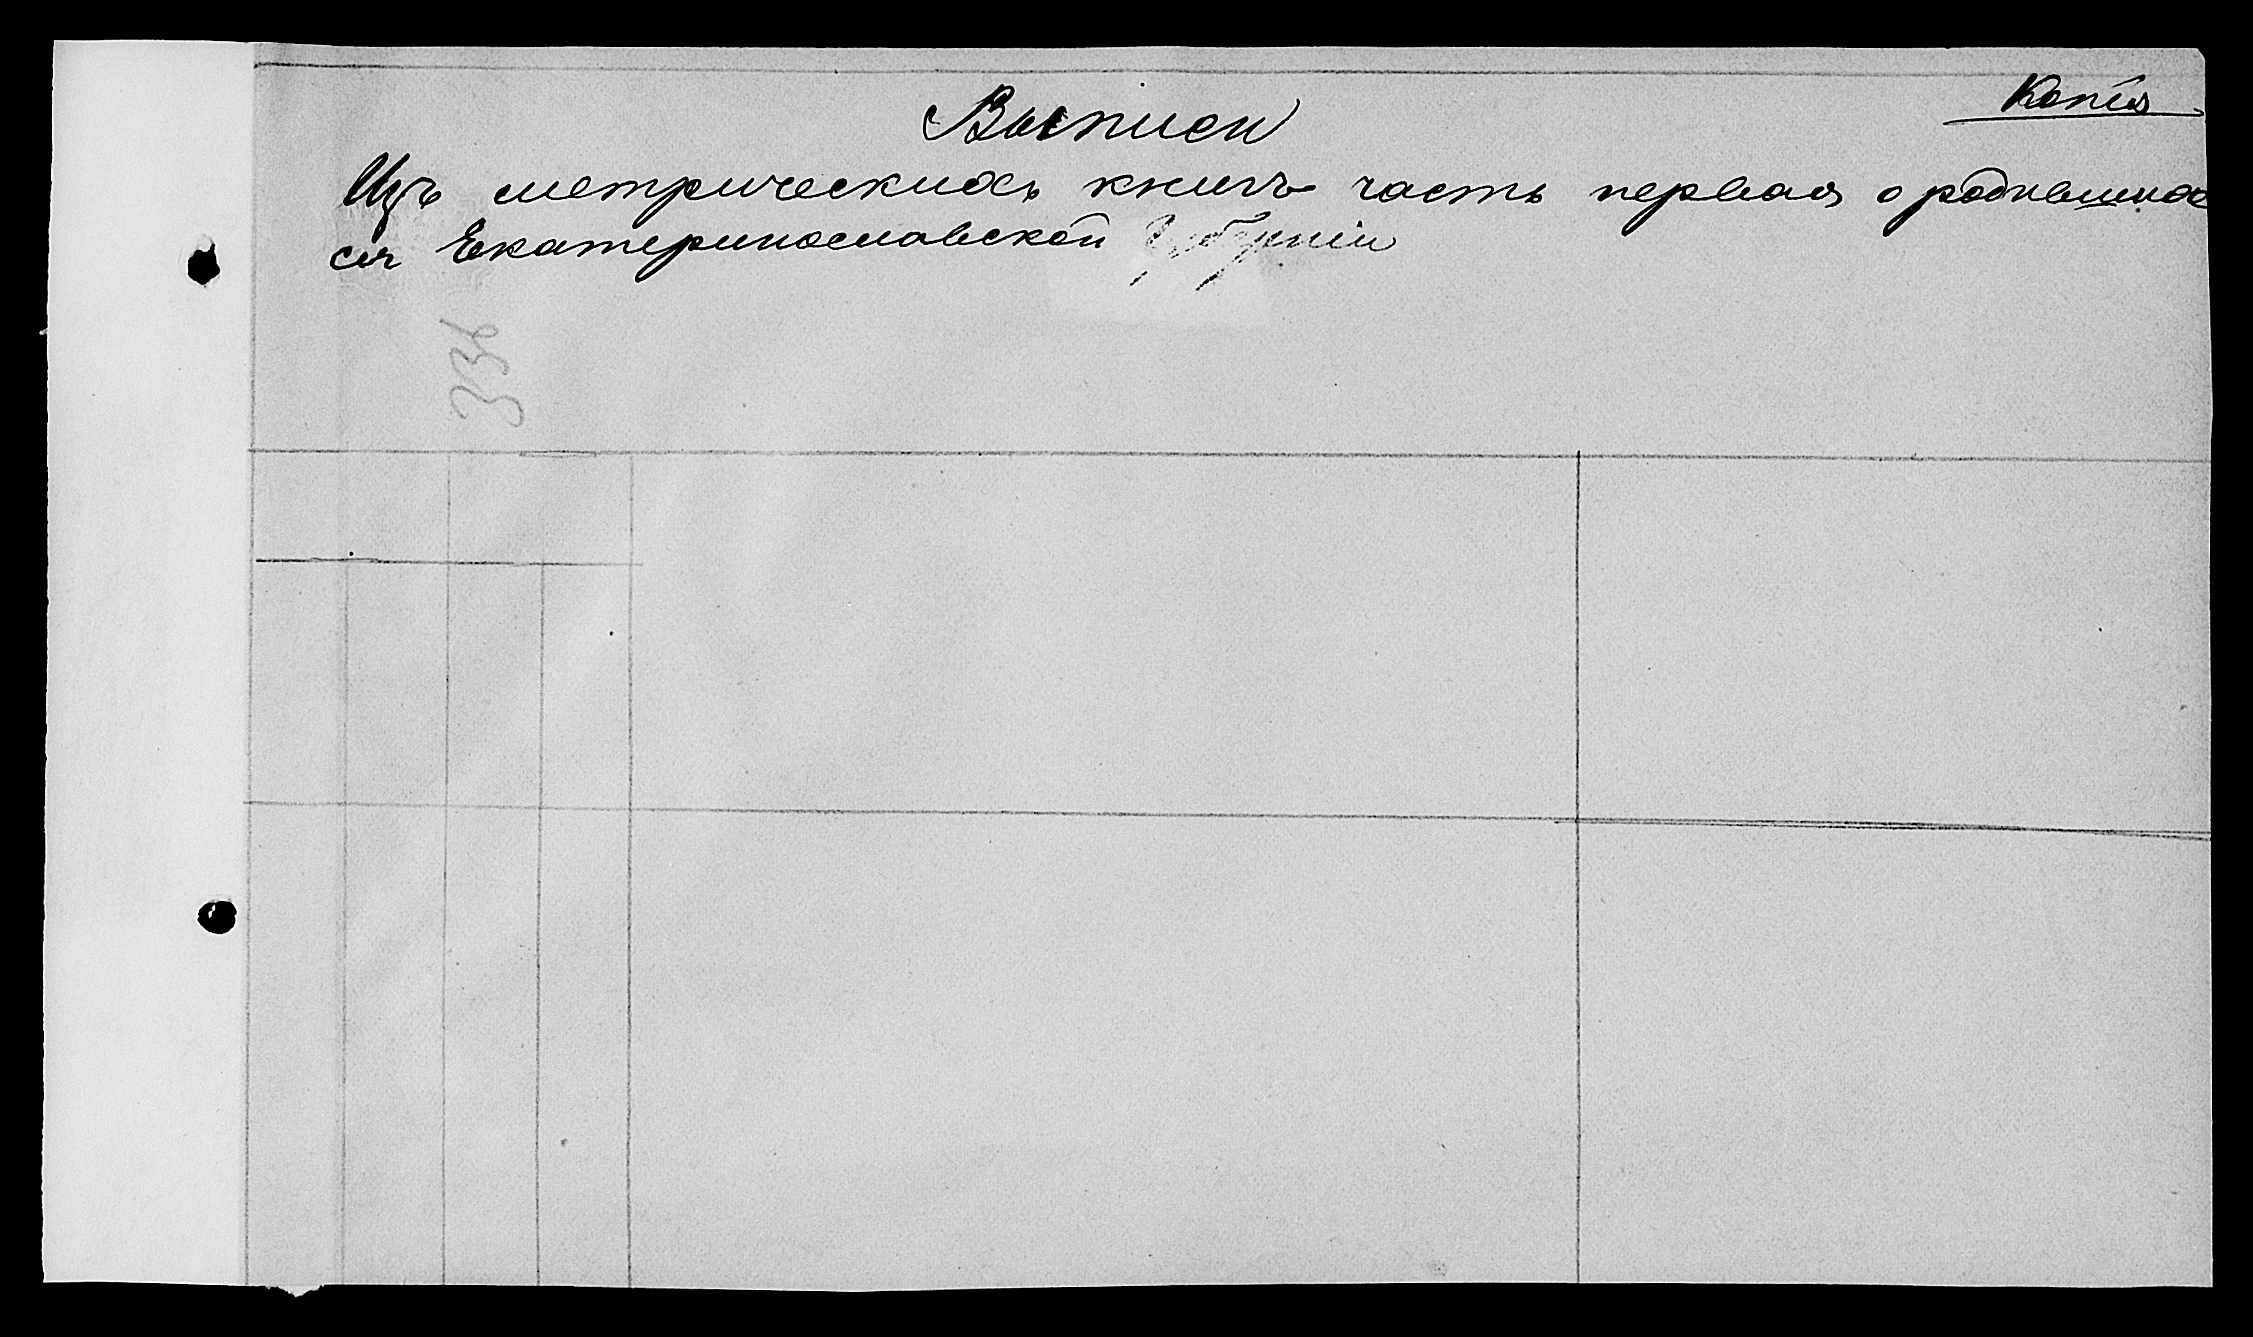 Копія
Выписи
Изъ метрическихъ книгъ часть первая о родившихъ
ся Екатеринославской Губерніи